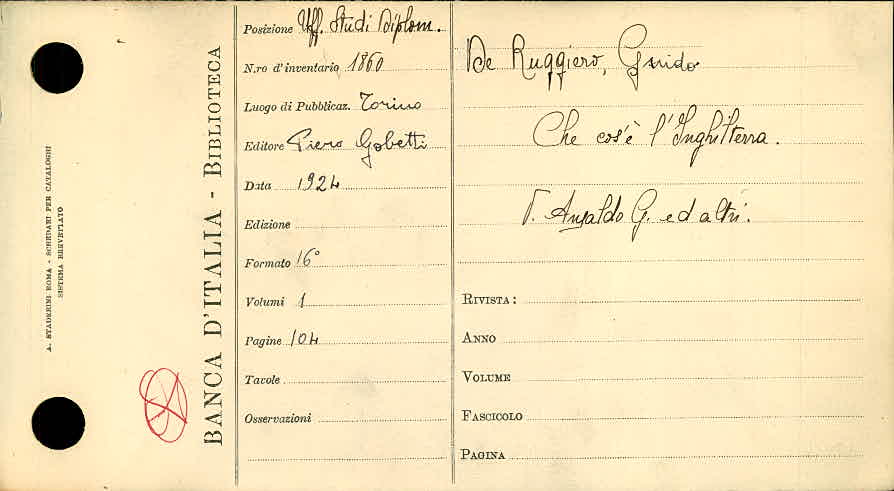 A. STADERINI ROMA - SCHEDARI PER CATALOGHI
SISTEMA BREVETTATO
BANCA D'ITALIA - BIBLIOTECA
Posizione Uff. Studi Diplom.
N.ro d'inventario 1860
Luogo di Pubblicaz. Torino
Editore Piero Gobetti
Data 1924
Edizione
Formato 16°
Volumi 1
Pagine 104
Tavole
Osservazioni
De Ruggiero, Guido
Che cos'è l'Inghilterra.
V. Ansaldo G. ed altri.
RIVISTA:
ANNO
VOLUME
FASCICOLO
PAGINA